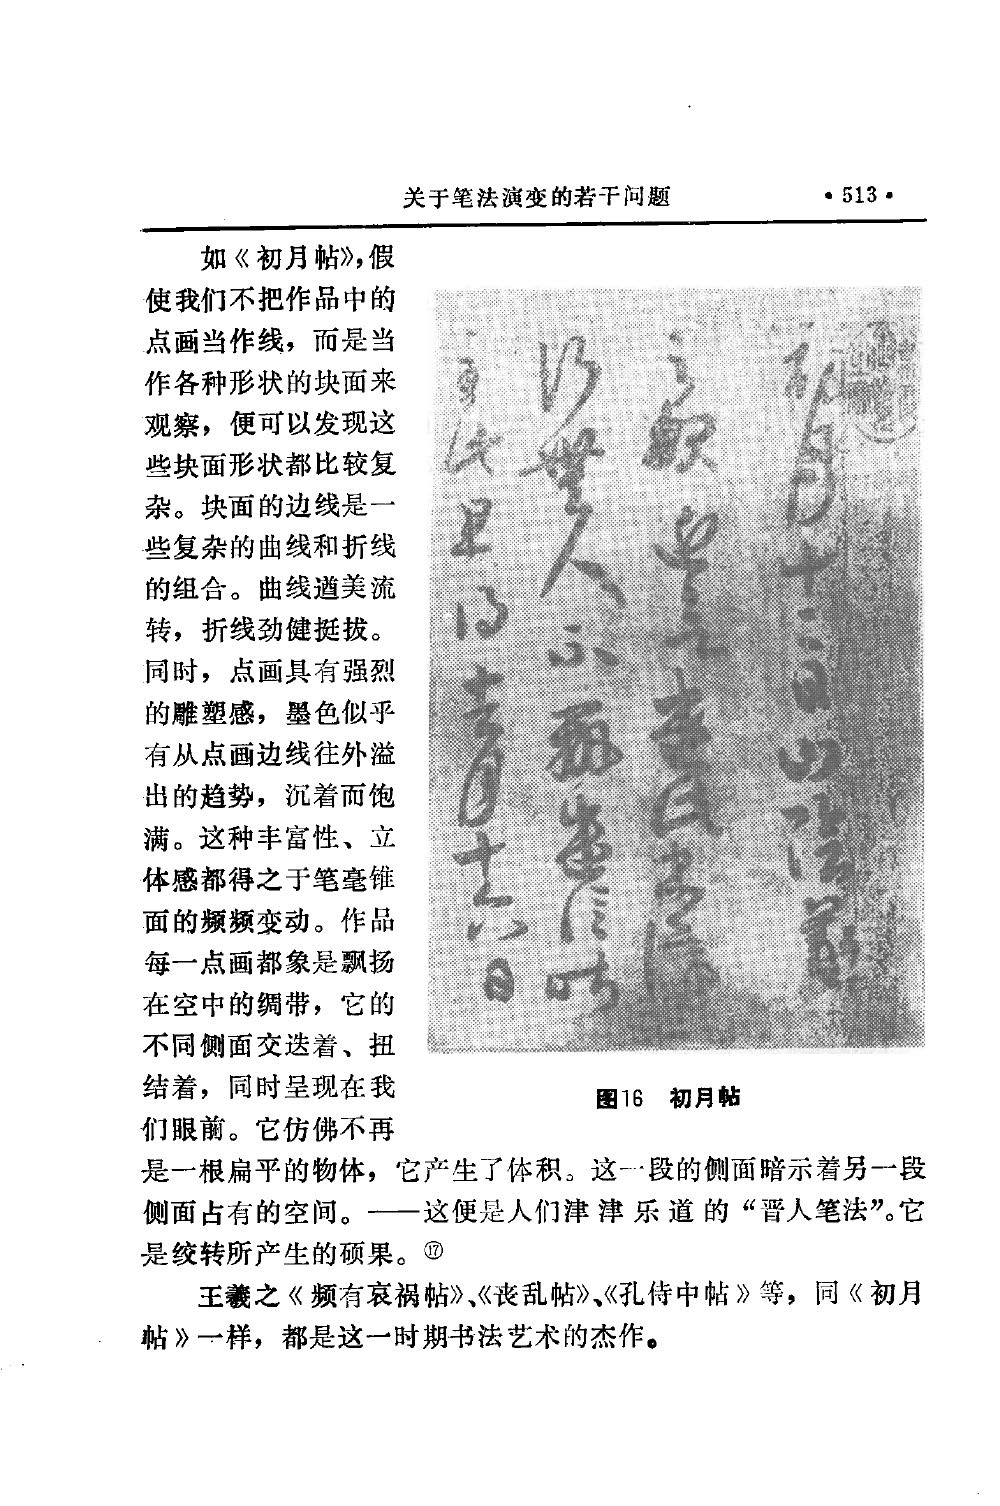 关于笔法演变的若干问题 ·513·
如《初月帖》，假
使我们不把作品中的
点画当作线，而是当
作各种形状的块面来
观察，便可以发现这
些块面形状都比较复
杂。块面的边线是一
些复杂的曲线和折线
的组合。曲线遒美流
转，折线劲健挺拔。
同时，点画具有强烈
的雕塑感，墨色似乎
有从点画边线往外溢
出的趋势，沉着而饱
满。这种丰富性、立
体感都得之于笔毫锥
面的频频变动。作品
每一点画都象是飘扬
在空中的绸带，它的
不同侧面交迭着、扭
结着，同时呈现在我
们眼前。它仿佛不再
是一根扁平的物体，它产生了体积。这一段的侧面暗示着另一段
侧面占有的空间。——这便是人们津津乐道的“晋人笔法”。它
是绞转所产生的硕果。⑰
王羲之《频有哀祸帖》、《丧乱帖》、《孔侍中帖》等，同《初月
帖》一样，都是这一时期书法艺术的杰作。
初月十二日山阴羲
图16 初月帖